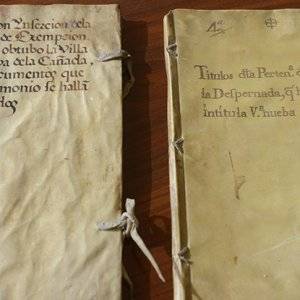 on Ynsezcion dela
de Exempcion
obtubo la Villa
va dela Cañada,
cumentos que
monio se hallã
dos
4ª
Titulos dla Perten.ª
la Despernada, q̃
intitula V.ª nueba